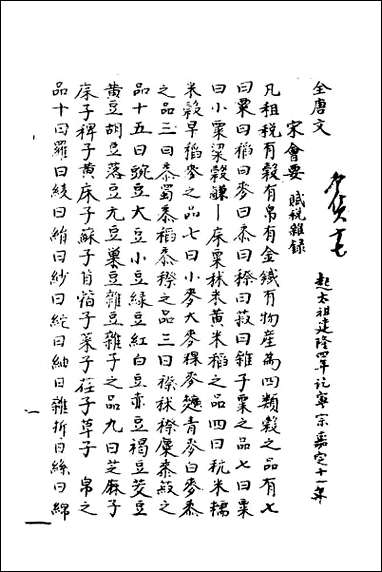 全唐文
宋會要 賦稅雜錄
食貨七十
起太祖建隆四年訖寧宗嘉定十一年
凡租稅有穀有帛有金鐵有物產為四類穀之品有七
曰粟曰稻曰麥曰黍曰穄曰菽曰雜子粟之品七曰粟
曰小粟粱穀床粟秫米黃米稻之品四曰秔米糯
米穀旱稻麥之品七曰小麥大麥稞麥麵青麥白麥黍
之品三曰黍蜀黍稻黍穄之品三曰穄秫穄糜黍菽之
品十五曰豌豆大豆小豆綠豆紅豆白豆赤豆褐豆茭豆
黃豆胡豆落豆元豆巢豆雜豆雜子之品九曰芝麻子
床子稗子黃床子蘇子苜蓿子菜子荏子草子 帛之
品十曰羅曰綾曰絹曰紗曰絁曰紬曰雜折曰絲曰綿